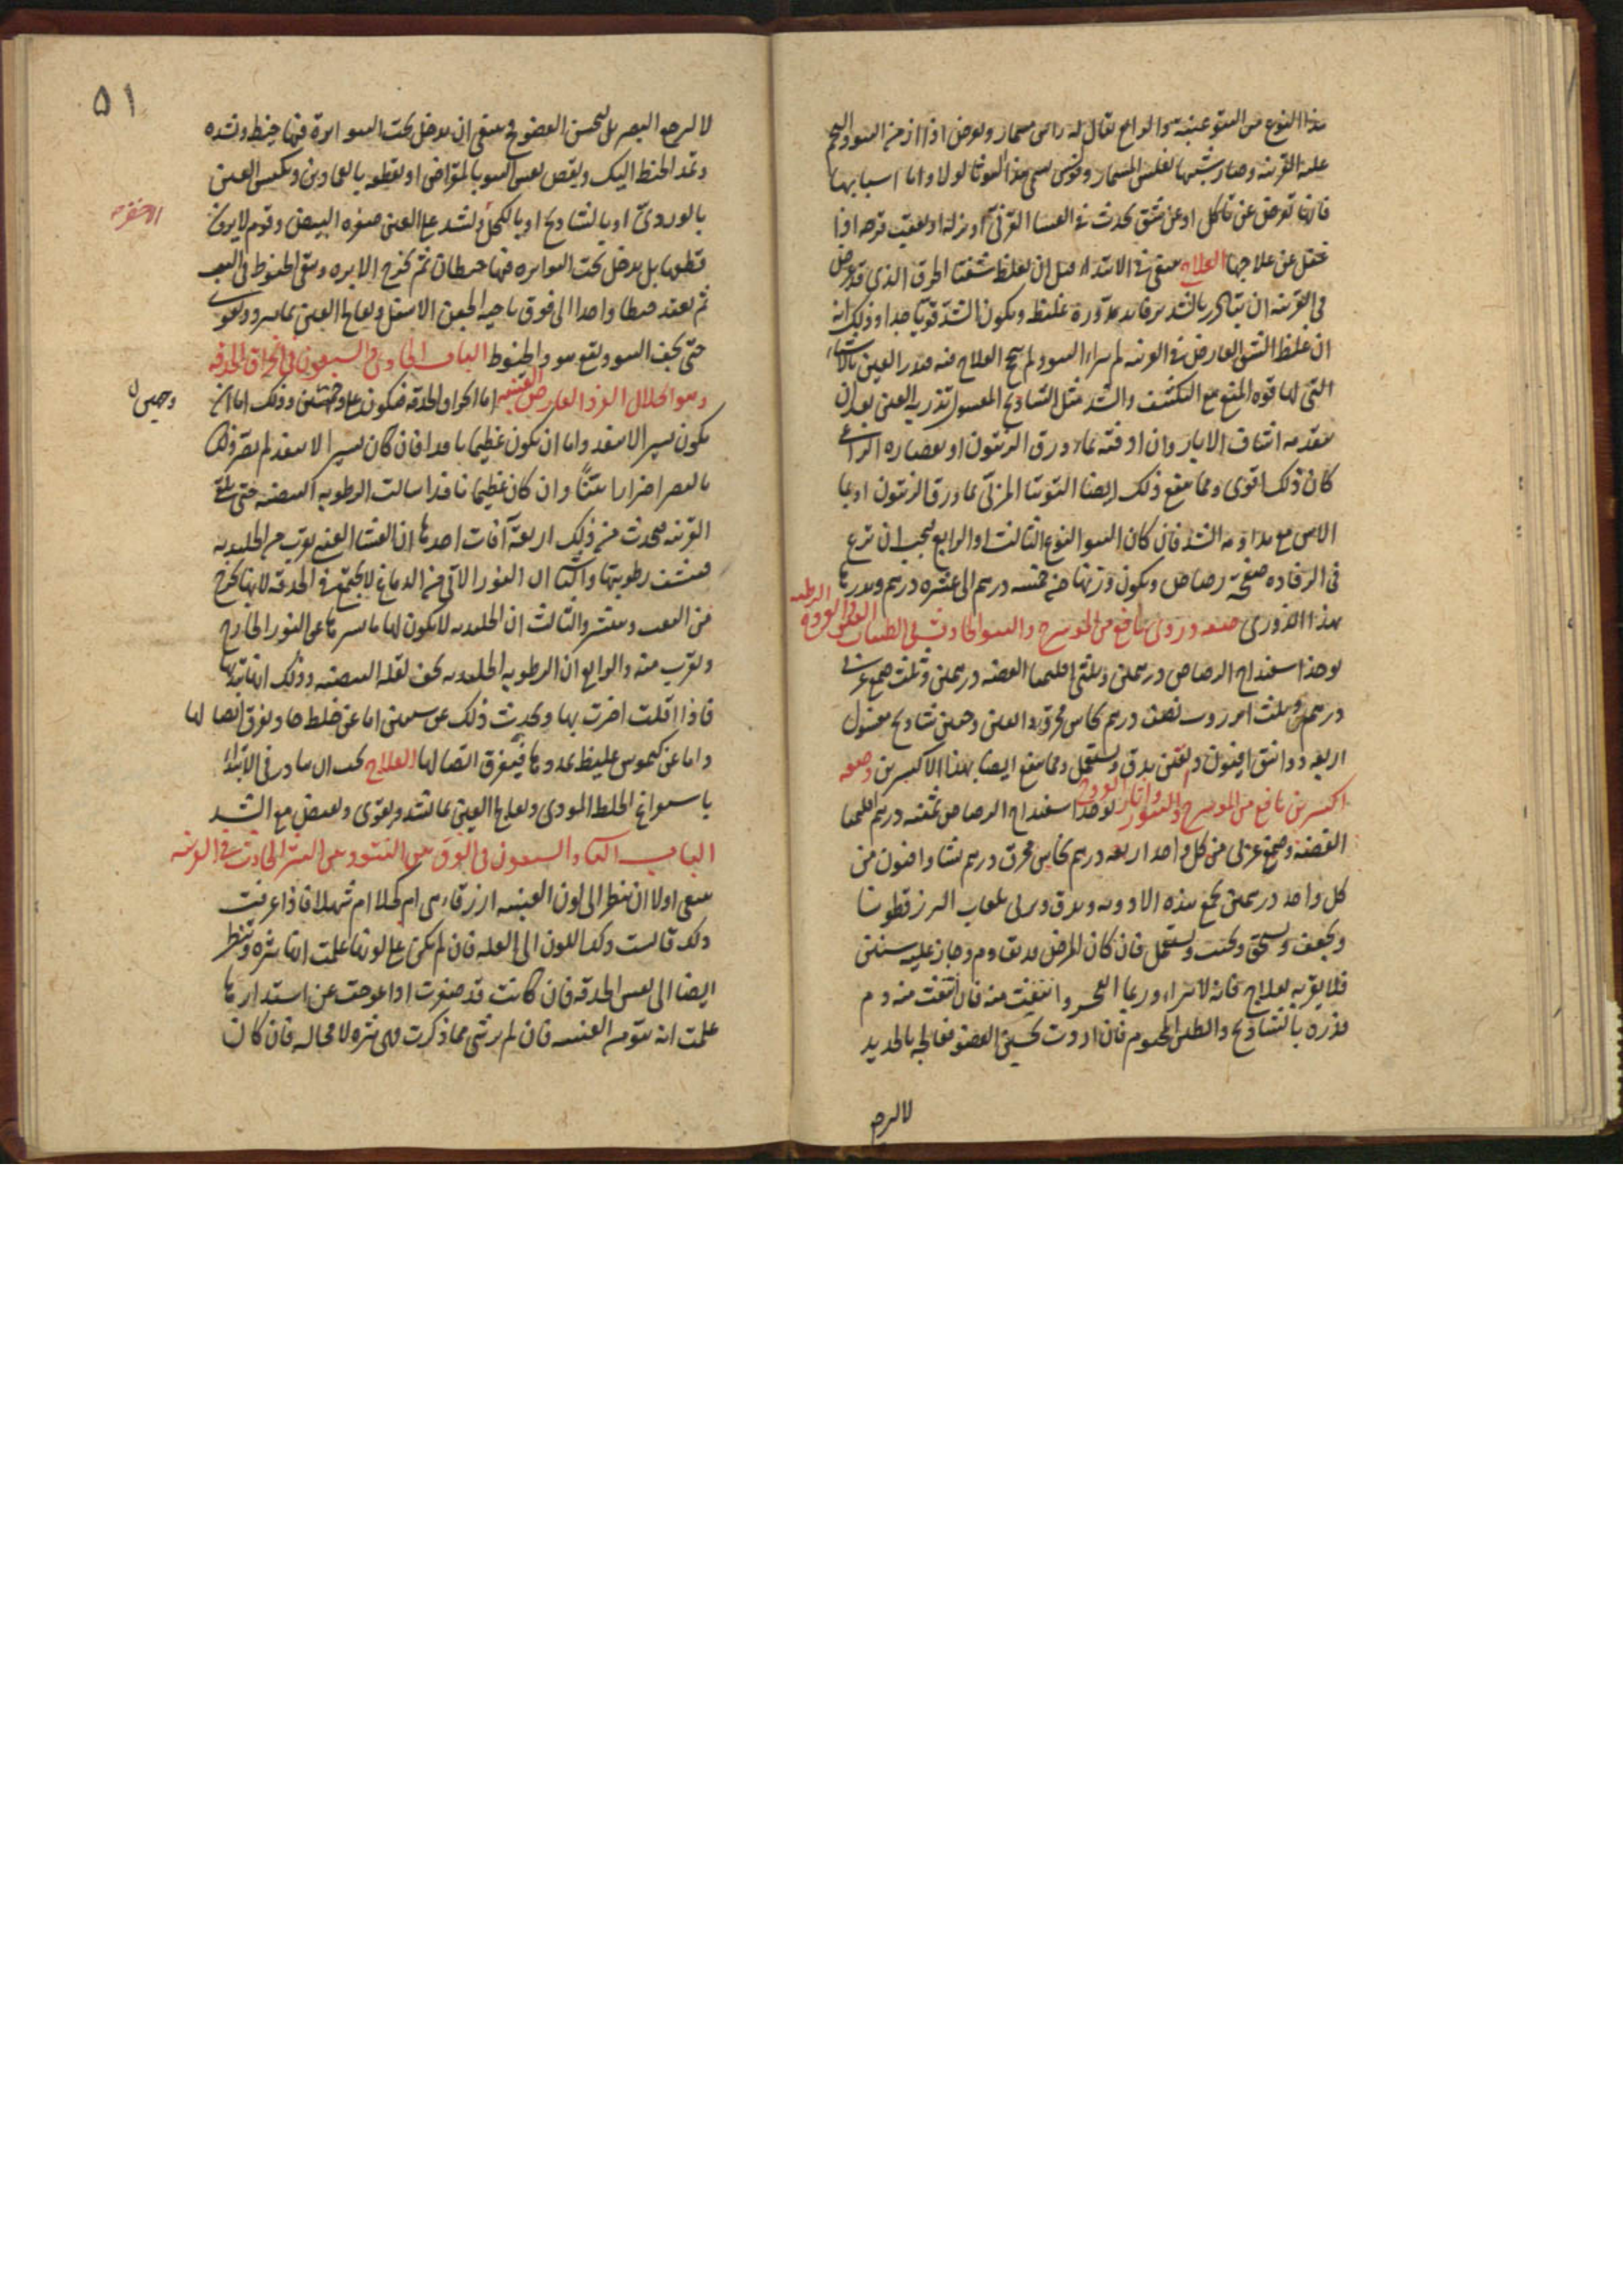 هذا النوع من النتو عنبية والرابع يقال له راس مسمار ويعرض اذا ازمن النتو والتحم
عليه القرنية وصار شبيها بفلس المسمار
فانها تعرض عن تاكل او عن شق يحدث في الغشا القرني او بعقيب قرحه اذا
غفل عن علاجها العلاج ينبغي في الابتداء قبل ان يغلظ شفتا الخرق الذي قد عرض
في القرنية ان يتدارك بالشد برفايد مدورة غليظة ويكون الشد قويا جدا وذلك انه
ان غلظ الشق العارض في القرنية لم يبرا النتو ولم ينجح العلاج فيه العين بالاشياء
التي لها قوة المنع مع التكثيف والشد مثل الشادنج المغسول تذر به العين بعد ان
وان اذفته بماء ورق الزيتون او بعصارة الراعي
كان ذلك اقوى ومما ينفع ذلك ايضا التوتيا المربى بماء ورق الزيتون او بماء
الاس مع مداومة الشد فان كان النتو النوع الثالث او الرابع فيجب ان
في الرفادة صفيحة رصاص ويكون وزنها من خمسة درهم الى عشرة درهم
هذا الذرور صفة ذرور نافع من المورسرج والنتو الحادث في الطبقات
يوخذ اسفيداج الرصاص درهمين وثلثي اقليميا الفضه درهمين وثلث صمغ عربي
درهم نصف درهم نحاس محرق شادنج مغسول
اربعة دوانيق افيون يدق ويستعمل ومما ينفع ايضا بهذا الاكسيرين وصفه
اكسيرين نافع من المورسرج والبثور واثار القروح يوخذ اسفيداج الرصاص ثمنيه درهم اقليميا
الفضه وصمغ عربي من كل واحد اربعه درهم نحاس محرق درهم نشا وافيون من
كل واحد درهمين يجمع هذه الادويه ويدق ويربى بلعاب البزر قطونا
ويجفف ويسحق وينخل ويستعمل فان كان المرض قد تقادم وجاز عليه سنتين
فلا يقربه بعلاج فانه لا يبراء وربما انفجر وانبعث منه فان انبعث منه دم
فذره بالشادنج والطين المختوم فان اردت تحسين العضو فعالجه بالحديد
لا لرجع
٥١
لا لرجعه البصر بل لتحسين العضو فينبغي ان يدخل تحت النتو ابرة فيها خيط وتشده
وتمد الخيط اليك ويقص نفس النتو بالمقراض او بقطعه بالقمادين وتكبس العين
بالوردي او بالشادنج او بالكحل وتشد على العين صفرة البيض وقوم لا يرون
قطعها بل يدخل تحت النتو ابره فيها خيطان ثم يخرج الابره ويبقى الخيوط في النتو
ثم يعقد خيطا واحدا الى فوق ناحية الجفن الاسفل ويعالج العين بما يبرد ويقوي
حتى يجف النتو ويقع هو والخيوط الباب الحادي والسبعون في انخراق الحدقه
وهو انحلال الفرد العارض للعنبيه اما انخراق الحدقه فيكون على وجهين وذلك اما ان
يكون يسيرا لا ينفذ واما ان يكون عظيما نافذا فان كان يسيرا لا ينفذ لم يضر ذلك
بالبصر اضرارا بينا وان كان عظيما نافذا سالت الرطوبه البيضيه حتى تلقى
القرنيه فيحدث من ذلك اربعة آفات احدها ان الغشا العنبي يقرب من الجليديه
فينشف رطوبتها والثاني ان النور الاتي من الدماغ لا يجتمع في الحدقه لانها يخرج
من الثقب وينتشر والثالث ان الجليديه لا يكون لها ما يسترها عن النور الخارج
ويقرب منه والرابع ان الرطوبه الجليديه تجف لقله البيضيه وذلك انها تنديها
فاذا قلت اضرت بها ويحدث ذلك عن سببين اما عن خلط حاد يفرق اتصالها
واما عن كيموس غليظ يمددها فيتفرق اتصالها العلاج يجب ان يبادر في الابتداء
باستفراغ الخلط الموذي ويعالج العين بما تشد ويقوي ويقبض مع الشد
الباب الثاني والسبعون في الفرق بين النتو وبين البثر الحادث في القرنيه
ينبغي اولا ان تنظر الى لون العنبيه ازرقاء هي ام كحلا ام شهلا فاذا عرفت
ذلك قايست ذلك اللون الى العله فان لم يكن على لونها علمت انها بثره وتنظر
ايضا الى نفس الحدقه فان كانت قد صغرت او اعوجت عن استدارتها
علمت انه نتو من العنبيه فان لم تر شي مما ذكرت فهي بثره لا محاله فان كان